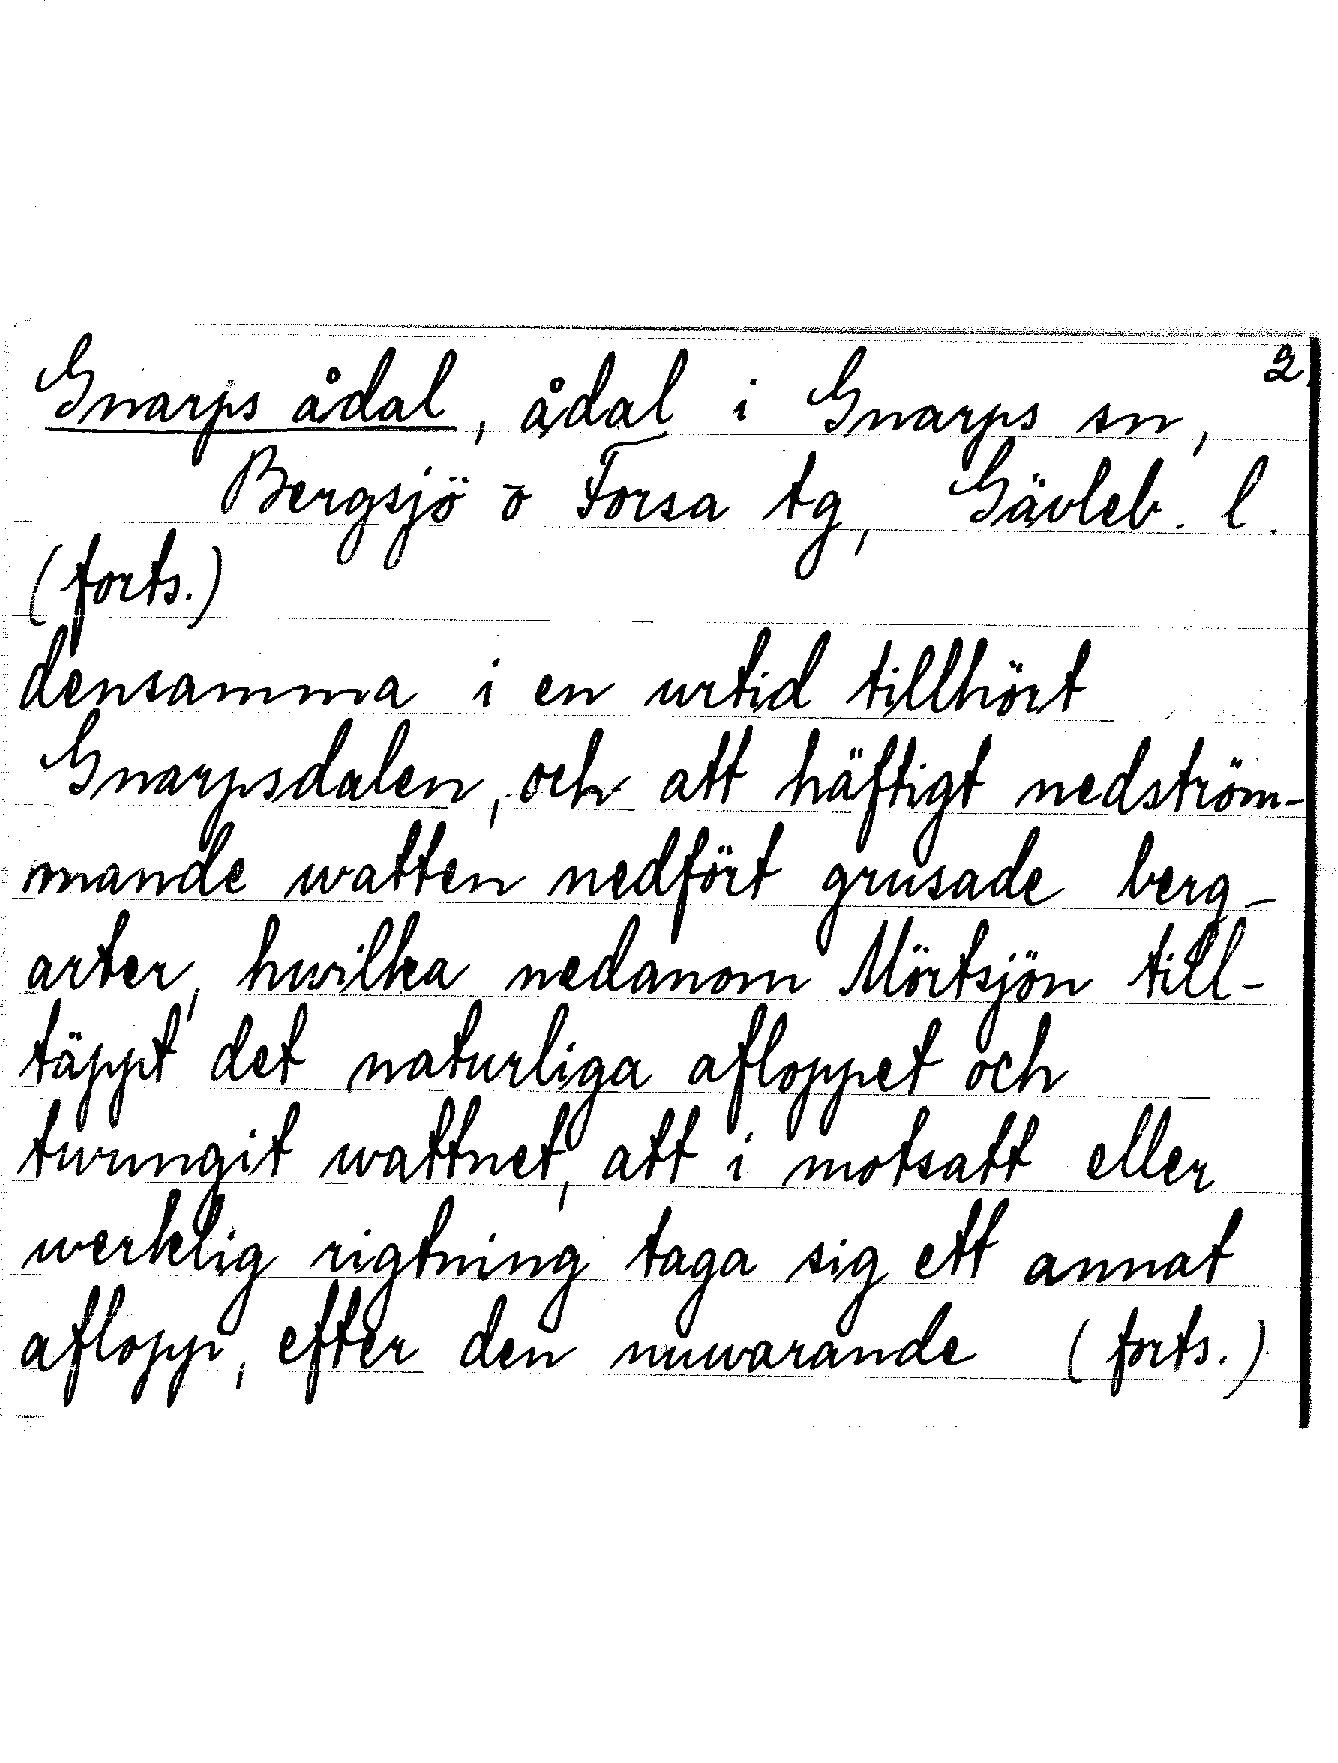 2
Gnarps ådal, ådal i Gnarps sn,
Bergsjö o Forsa tg, Gävleb. l.
(forts.)
densamma i en urtid tillhört
Gnarpsdalen, och att häftigt nedström-
mande watten nedfört grusade berg-
arter, hwilka nedanom Mörtsjön till-
täppt det naturliga afloppet och
twungit wattnet, att i motsatt eller
werklig rigtning taga sig ett annat
aflopp, efter den nuwarande (forts.)